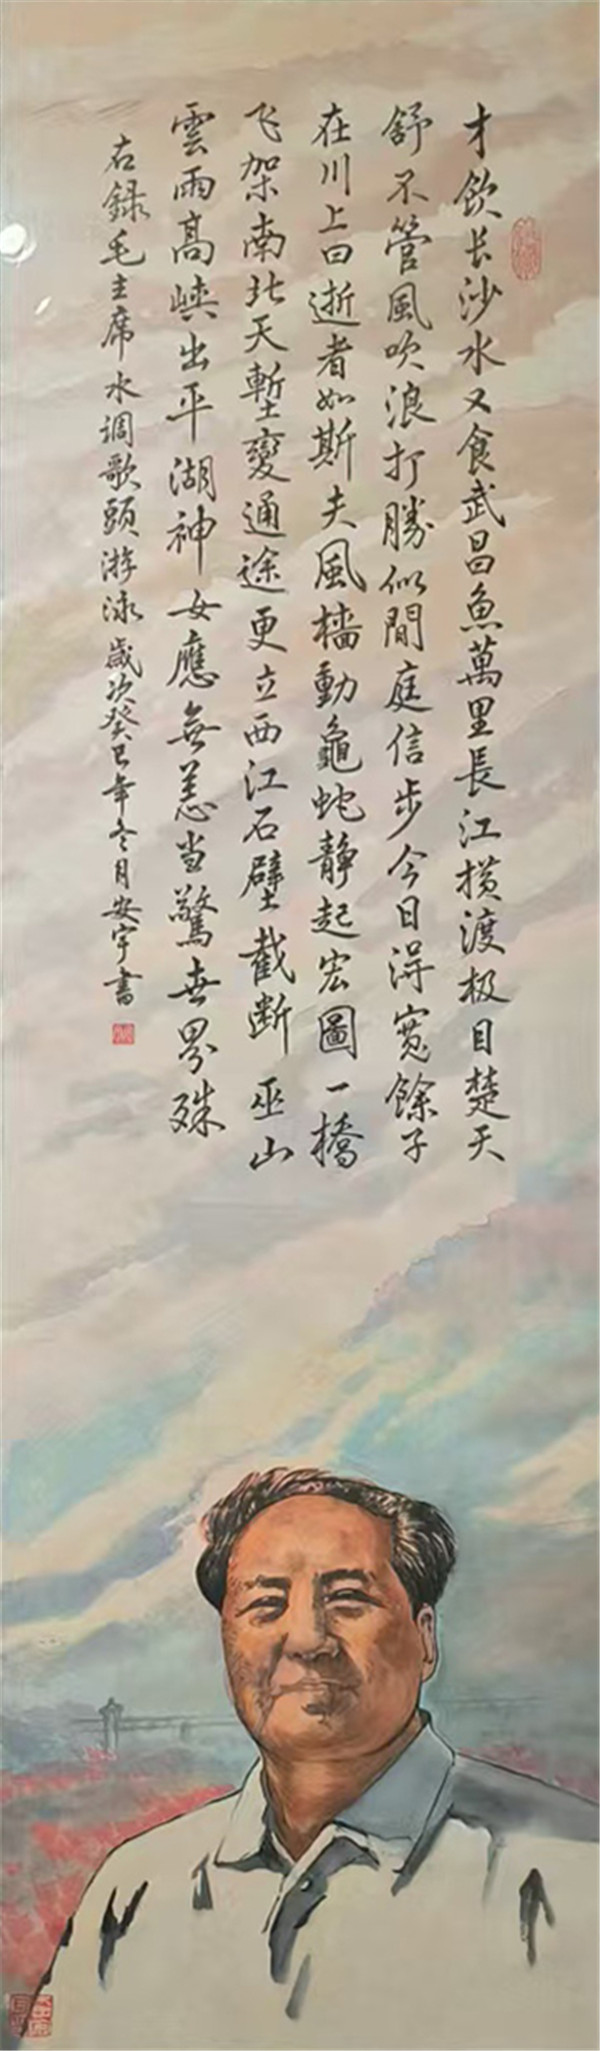 才飲长沙水又食武昌魚萬里長江横渡极目楚天
舒不管風吹浪打勝似閒庭信步今日得寬餘子
在川上曰逝者如斯夫風檣動龜蛇靜起宏圖一橋
飞架南北天塹變通途更立西江石壁截断巫山
雲雨高峽出平湖神女應無恙当驚世界殊
右録毛主席水调歌頭游泳歲次癸巳年冬月安宇書